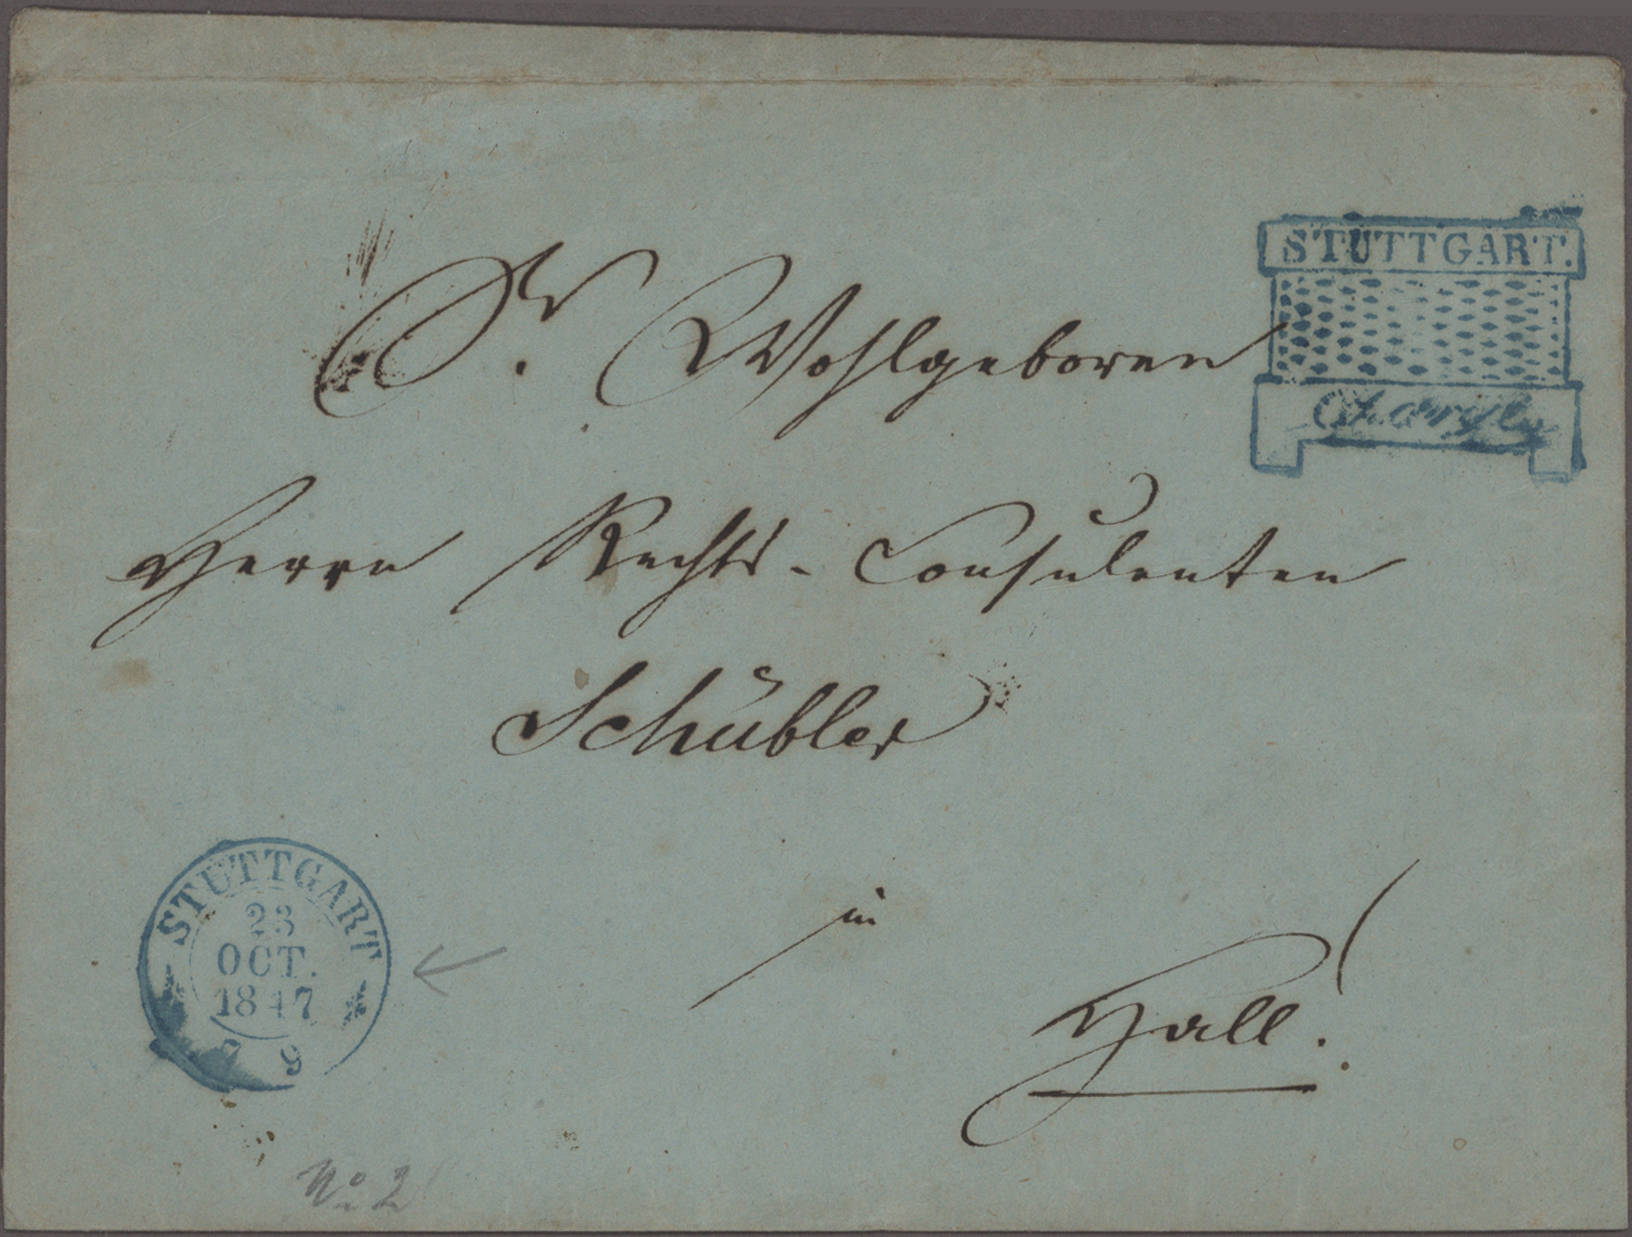 STUTTGART.
Chargé
Sr. Wohlgeboren
Herrn Rechts-Consulenten
Schübler
in
Hall!
STUTTGART
23
OCT.
1847
9
No. 2